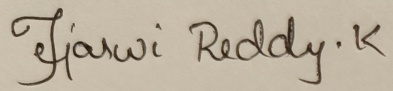 Tejaswi Reddy.K